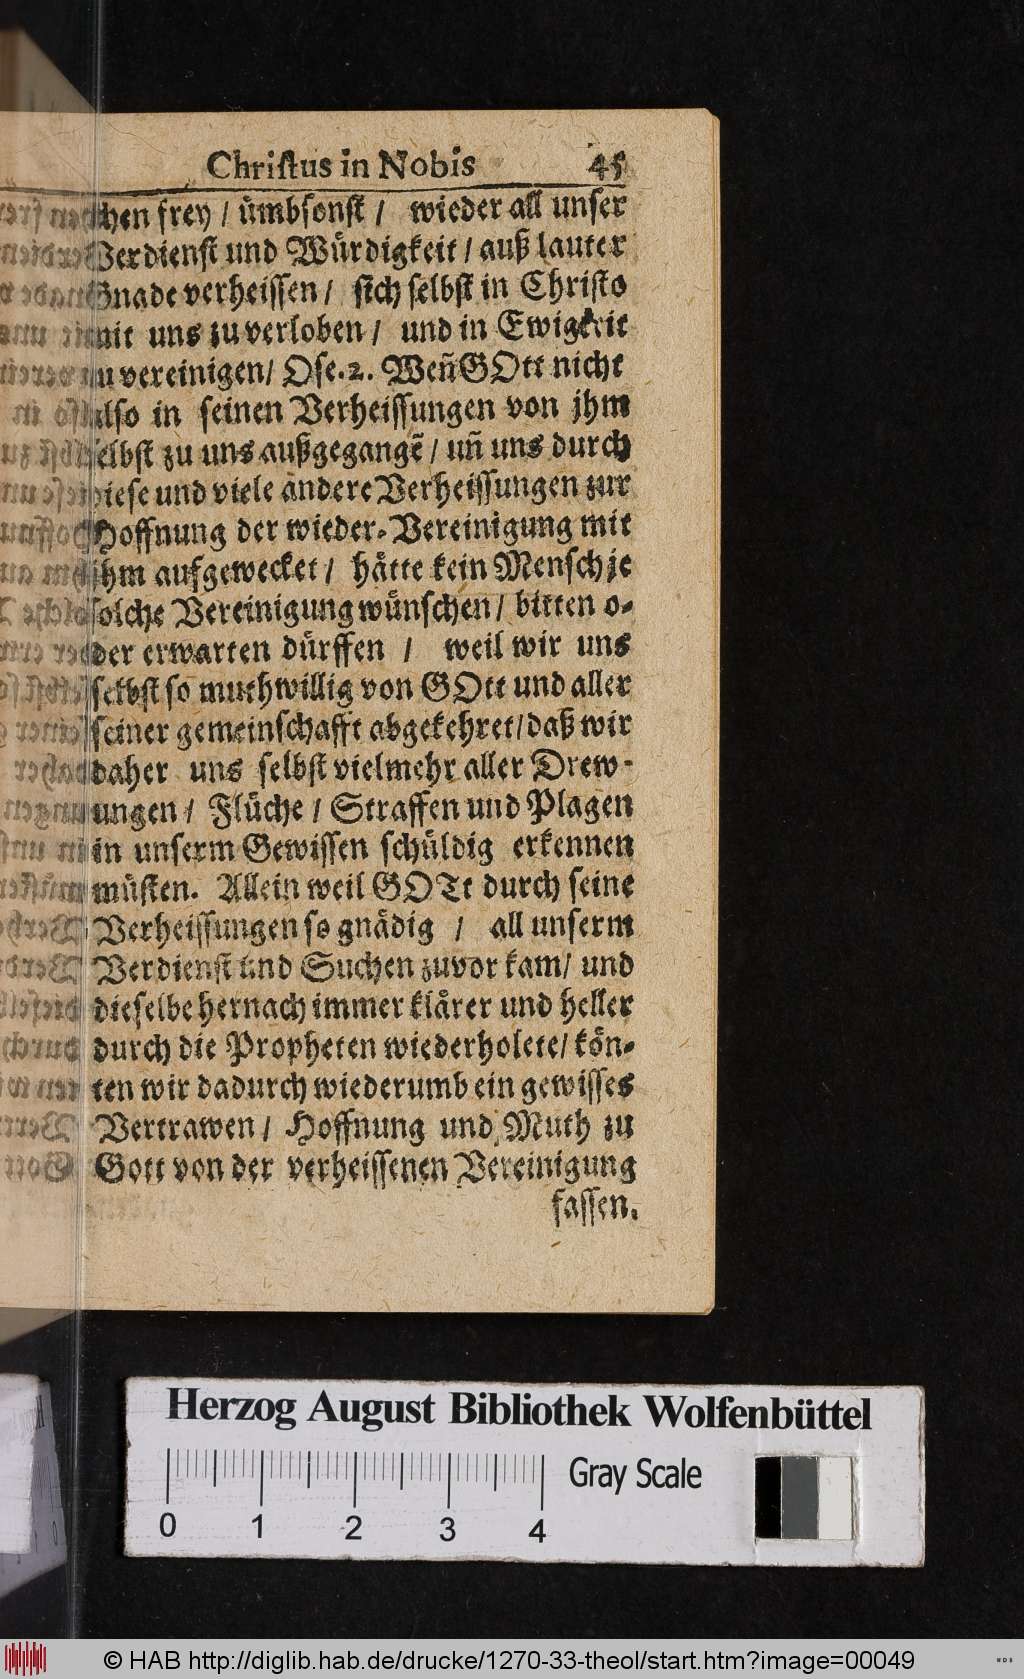 Christus in Nobis 45
chen frey / ümbsonst / wieder all unser
Verdienst und Würdigkeit / auß lauter
Gnade verheissen / sich selbst in Christo
mit uns zu verloben / und in Ewigkeit
zu vereinigen / Ose. 2. Weñ GOtt nicht
also in seinen Verheissungen von jhm
selbst zu uns außgegangẽ / uñ uns durch
diese und viele andere Verheissungen zur
Hoffnung der wieder-Vereinigung mit
jhm aufgewecket / hätte kein Mensch je
solche Vereinigung wünschen / bitten o-
der erwarten dürffen / weil wir uns
selbst so muthwillig von GOtt und aller
seiner gemeinschafft abgekehret / daß wir
daher uns selbst vielmehr aller Drew-
ungen / Flüche / Straffen und Plagen
in unserm Gewissen schüldig erkennen
müsten. Allein weil GOTt durch seine
Verheissungen so gnädig / all unserm
Verdienst und Suchen zuvor kam / und
dieselbe hernach immer klärer und heller
durch die Propheten wiederholete / kön-
ten wir dadurch wiederumb ein gewisses
Vertrawen / Hoffnung und Muth zu
Gott von der verheissenen Vereinigung
fassen.
Herzog August Bibliothek Wolfenbüttel
0 1 2 3 4 Gray Scale
© HAB http://diglib.hab.de/drucke/1270-33-theol/start.htm?image=00049